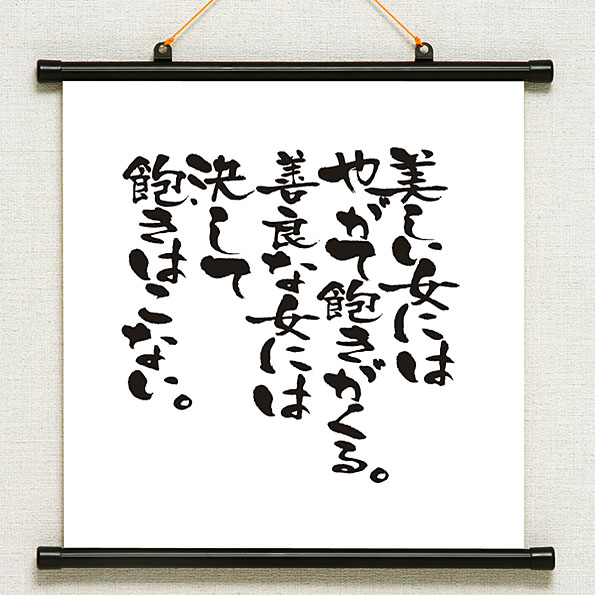 美しい女には
やがて飽きがくる。
善良な女には
決して
飽きはこない。